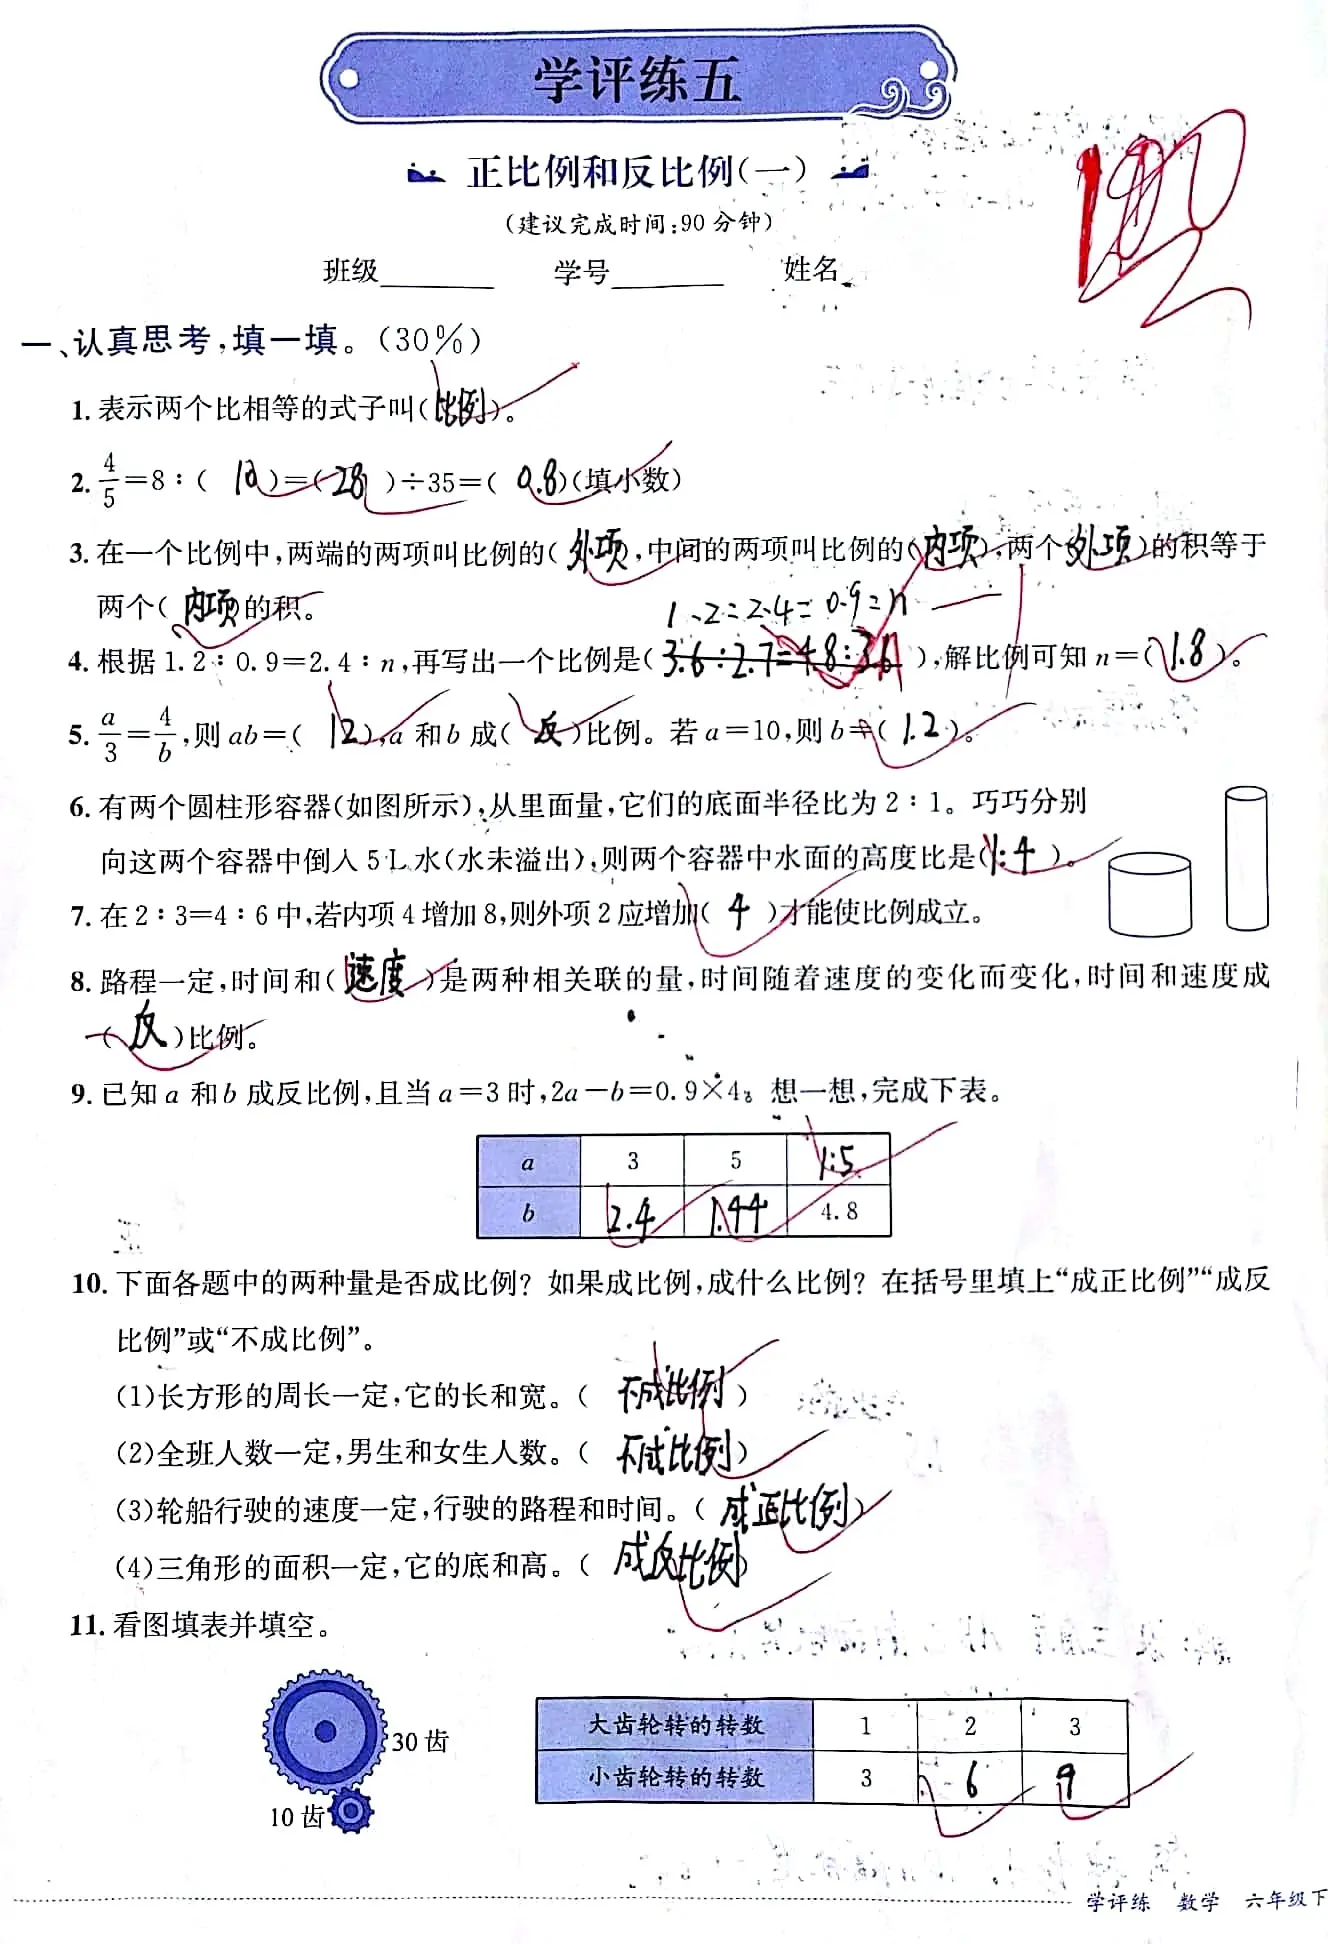 学评练五
正比例和反比例(一)
(建议完成时间:90分钟)
班级 学号 姓名
一、认真思考,填一填。(30%)
1. 表示两个比相等的式子叫(比例)。
2. 4/5=8:( 10 )=( 28 )÷35=( 0.8 )(填小数)
3. 在一个比例中,两端的两项叫比例的(外项),中间的两项叫比例的(内项),两个(外项)的积等于
两个(内项)的积。
1.2=2.4=0.9=n
4. 根据1.2:0.9=2.4:n,再写出一个比例是(3.6:2.7=4.8:3.6),解比例可知n=(1.8)。
5. a/3=4/b,则ab=( 12 ),a和b成( 反 )比例。若a=10,则b=( 1.2 )。
6. 有两个圆柱形容器(如图所示),从里面量,它们的底面半径比为2:1。巧巧分别
向这两个容器中倒入5L水(水未溢出),则两个容器中水面的高度比是(1:4)。
7. 在2:3=4:6中,若内项4增加8,则外项2应增加( 4 )才能使比例成立。
8. 路程一定,时间和(速度)是两种相关联的量,时间随着速度的变化而变化,时间和速度成
( 反 )比例。
9. 已知a和b成反比例,且当a=3时,2a-b=0.9×4。想一想,完成下表。
a 3 5 1.5
b 2.4 1.44 4.8
10. 下面各题中的两种量是否成比例?如果成比例,成什么比例?在括号里填上“成正比例”“成反
比例”或“不成比例”。
(1)长方形的周长一定,它的长和宽。( 不成比例 )
(2)全班人数一定,男生和女生人数。( 不成比例 )
(3)轮船行驶的速度一定,行驶的路程和时间。( 成正比例 )
(4)三角形的面积一定,它的底和高。( 成反比例 )
11. 看图填表并填空。
30齿
10齿
大齿轮转的转数 1 2 3
小齿轮转的转数 3 6 9
学评练 数学 六年级下